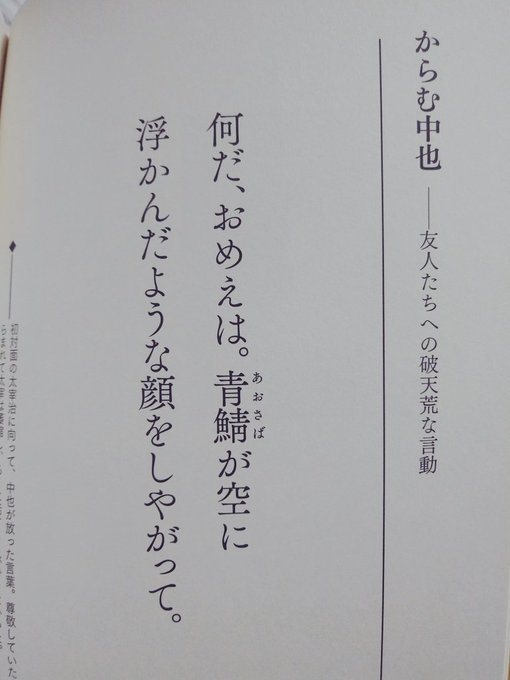 からむ中也――友人たちへの破天荒な言動
何だ、おめえは。青鯖が空に
あおさば
浮かんだような顔をしやがって。
初対面の太宰治に向って、中也が放った言葉。尊敬していた